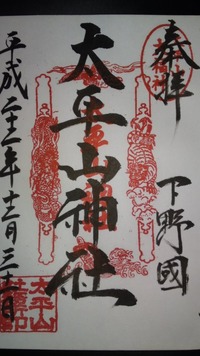 奉拝
下野國
太平山神社
平成二十三年十二月三十一日
太平山